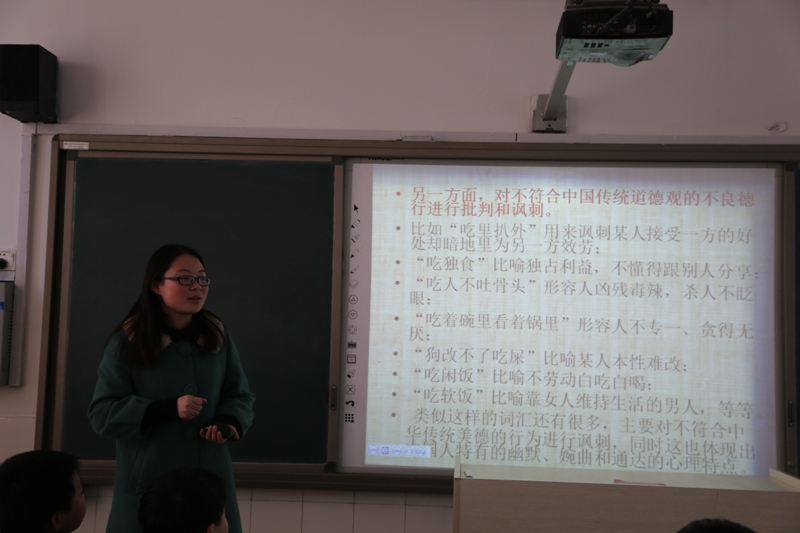 另一方面，对不符合中国传统道德观的不良德
行进行批判和讽刺。
比如“吃里扒外”用来讽刺某人接受一方的好
处却暗地里为另一方效劳；
“吃独食”比喻独占利益，不懂得跟别人分享；
“吃人不吐骨头”形容人凶残毒辣，杀人不眨
眼；
“吃着碗里看着锅里”形容人不专一、贪得无
厌；
“狗改不了吃屎”比喻某人本性难改；
“吃闲饭”比喻不劳动白吃白喝；
“吃软饭”比喻靠女人维持生活的男人，等等
类似这样的词汇还有很多，主要对不符合中
华传统美德的行为进行讽刺，同时这也体现出
国人特有的幽默、婉曲和通达的心理特点